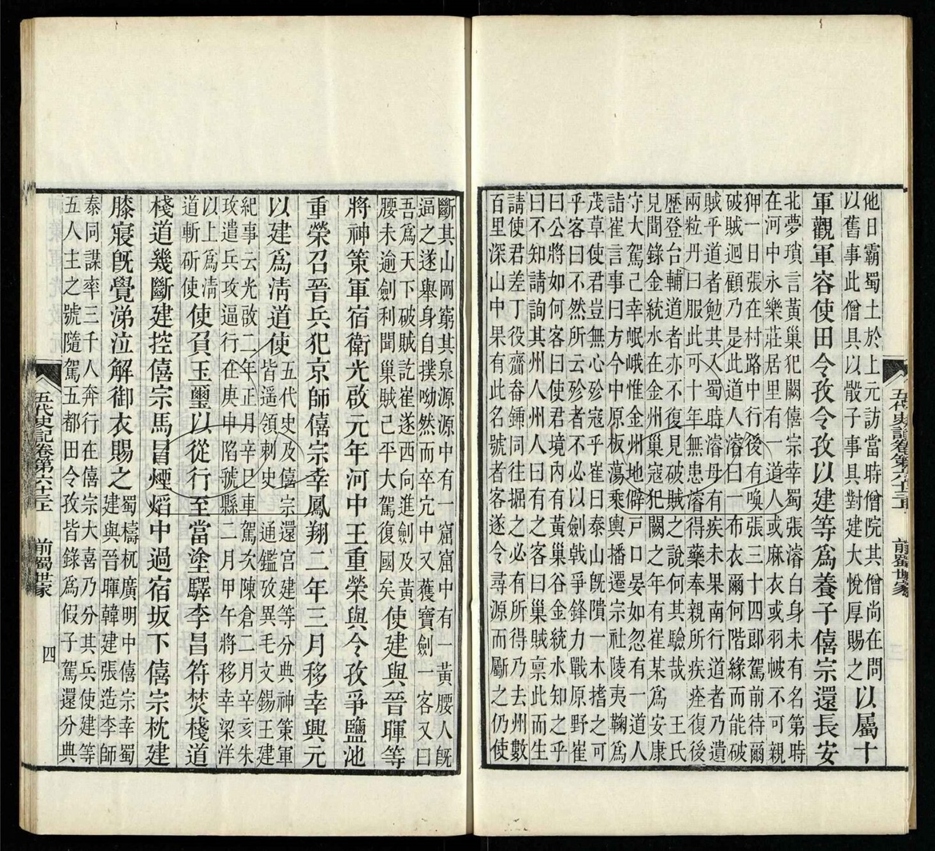 他日霸蜀土於上元訪當時僧院其僧尚在問
以舊事此僧具以骰子事具對建大悅厚賜之
以屬十
軍觀軍容使田令孜令孜以建等爲養子僖宗還長安
北夢瑣言黃巢犯闕僖宗幸蜀張濬白身未有名第時
在河中永樂莊居里有一道人或麻衣或羽帔不可親
狎一日張在村路中行後有喚張三十四郞駕前待爾
破賊迴顧乃是此道人濬曰一布衣爾何階緣而能破
賊乎道者勉其入蜀時濬母有疾未果南行道者乃遺
兩粒丹曰服此可十年無患濬得藥奉親所疾痊復後
歷登台輔道者亦不復見破賊之說何其驗哉 王氏
見聞錄金統水在金州巢寇犯闕之年有崔某爲安康
守大駕己幸岷峨惟金州地僻戸口晏如忽有一道人
詣崔言事曰方今中原板蕩乘輿播遷宗社陵夷鞠爲
茂草使君豈無心殄寇乎崔曰泰山旣隤一木搘之可
乎客曰不然所云殄者不必以劍戟爭鋒力戰原野崔
曰公將如何客曰使君境內有黃巢谷金統水知之乎
曰不知請詢其州人州人曰有之客曰巢賊稟此而生
請使君差丁役齎畚鍤同往掘之必有所得乃去州數
百里深山中果有此名號者客遂令尋源而劚之仍使
五代史記卷第六十三上 前蜀世家
斷其山岡窮其泉源源中有一窟窟中有一黃腰人旣
逼之遂舉身自撲呦然而卒穴中又獲寶劍一客又曰
吾爲天下破賊訖崔遂西向進劍及黃
腰未逾劍利聞巢賊己平大駕復國矣
使建與晉暉等
將神策軍宿衛光啟元年河中王重榮與令孜爭鹽池
重榮召晉兵犯京師僖宗幸鳳翔二年三月移幸興元
以建爲淸道使
五代史及僖宗還宫建等分典神策軍
皆遥領刺史 通鑑攷異毛文錫王建
紀事云光啟二年正月辛巳車駕次陳倉二月辛亥朱
攻遣兵攻逼行在庚申陷虢縣二月甲午將移幸梁洋
以上爲淸
道斬斫使
使負玉璽以從行至當塗驛李昌符焚棧道
棧道幾斷建控僖宗馬冒煙熖中過宿坂下僖宗枕建
膝寢旣覺涕泣解御衣賜之
蜀檮杌廣明中僖宗幸蜀
建與晉暉韓建張造李師
泰同謀率三千人奔行在僖宗大喜乃分其兵使建等
五人主之號隨駕五都田令孜皆錄爲假子駕還分典
五代史記卷第六十三上 前蜀世家 四